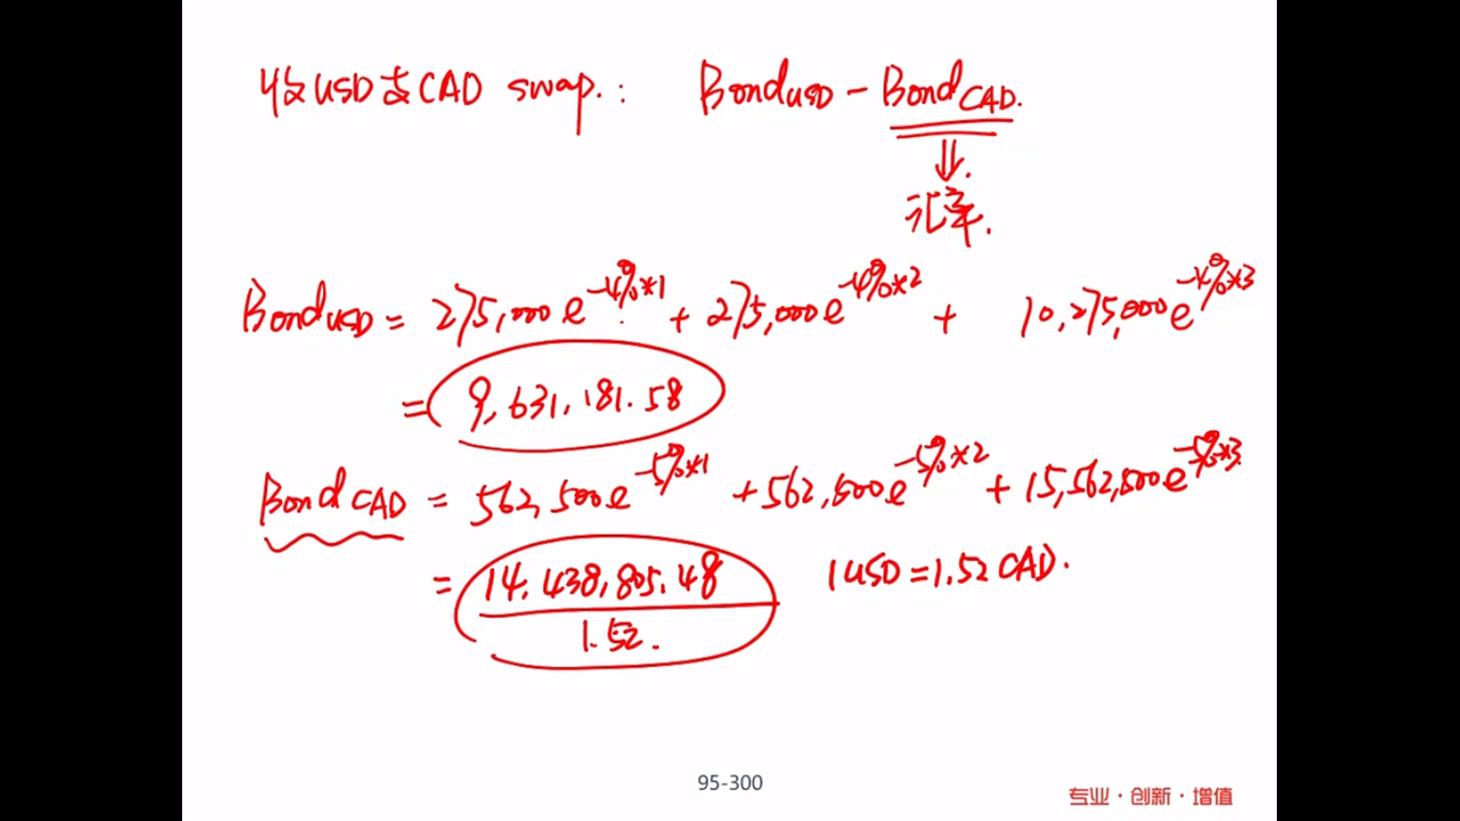 收USD支CAD swap.: Bond USD - Bond CAD.
⇓.
汇率.
Bond USD = 275,000 e^{-4%*1} + 275,000 e^{-4%*2} + 10,275,000 e^{-4%*3}
= 9,631,181.58
Bond CAD = 562,500 e^{-5%*1} + 562,500 e^{-5%*2} + 15,562,500 e^{-5%*3}
= 14,438,805.48 1USD = 1.52 CAD.
1.52.
95-300
专业·创新·增值